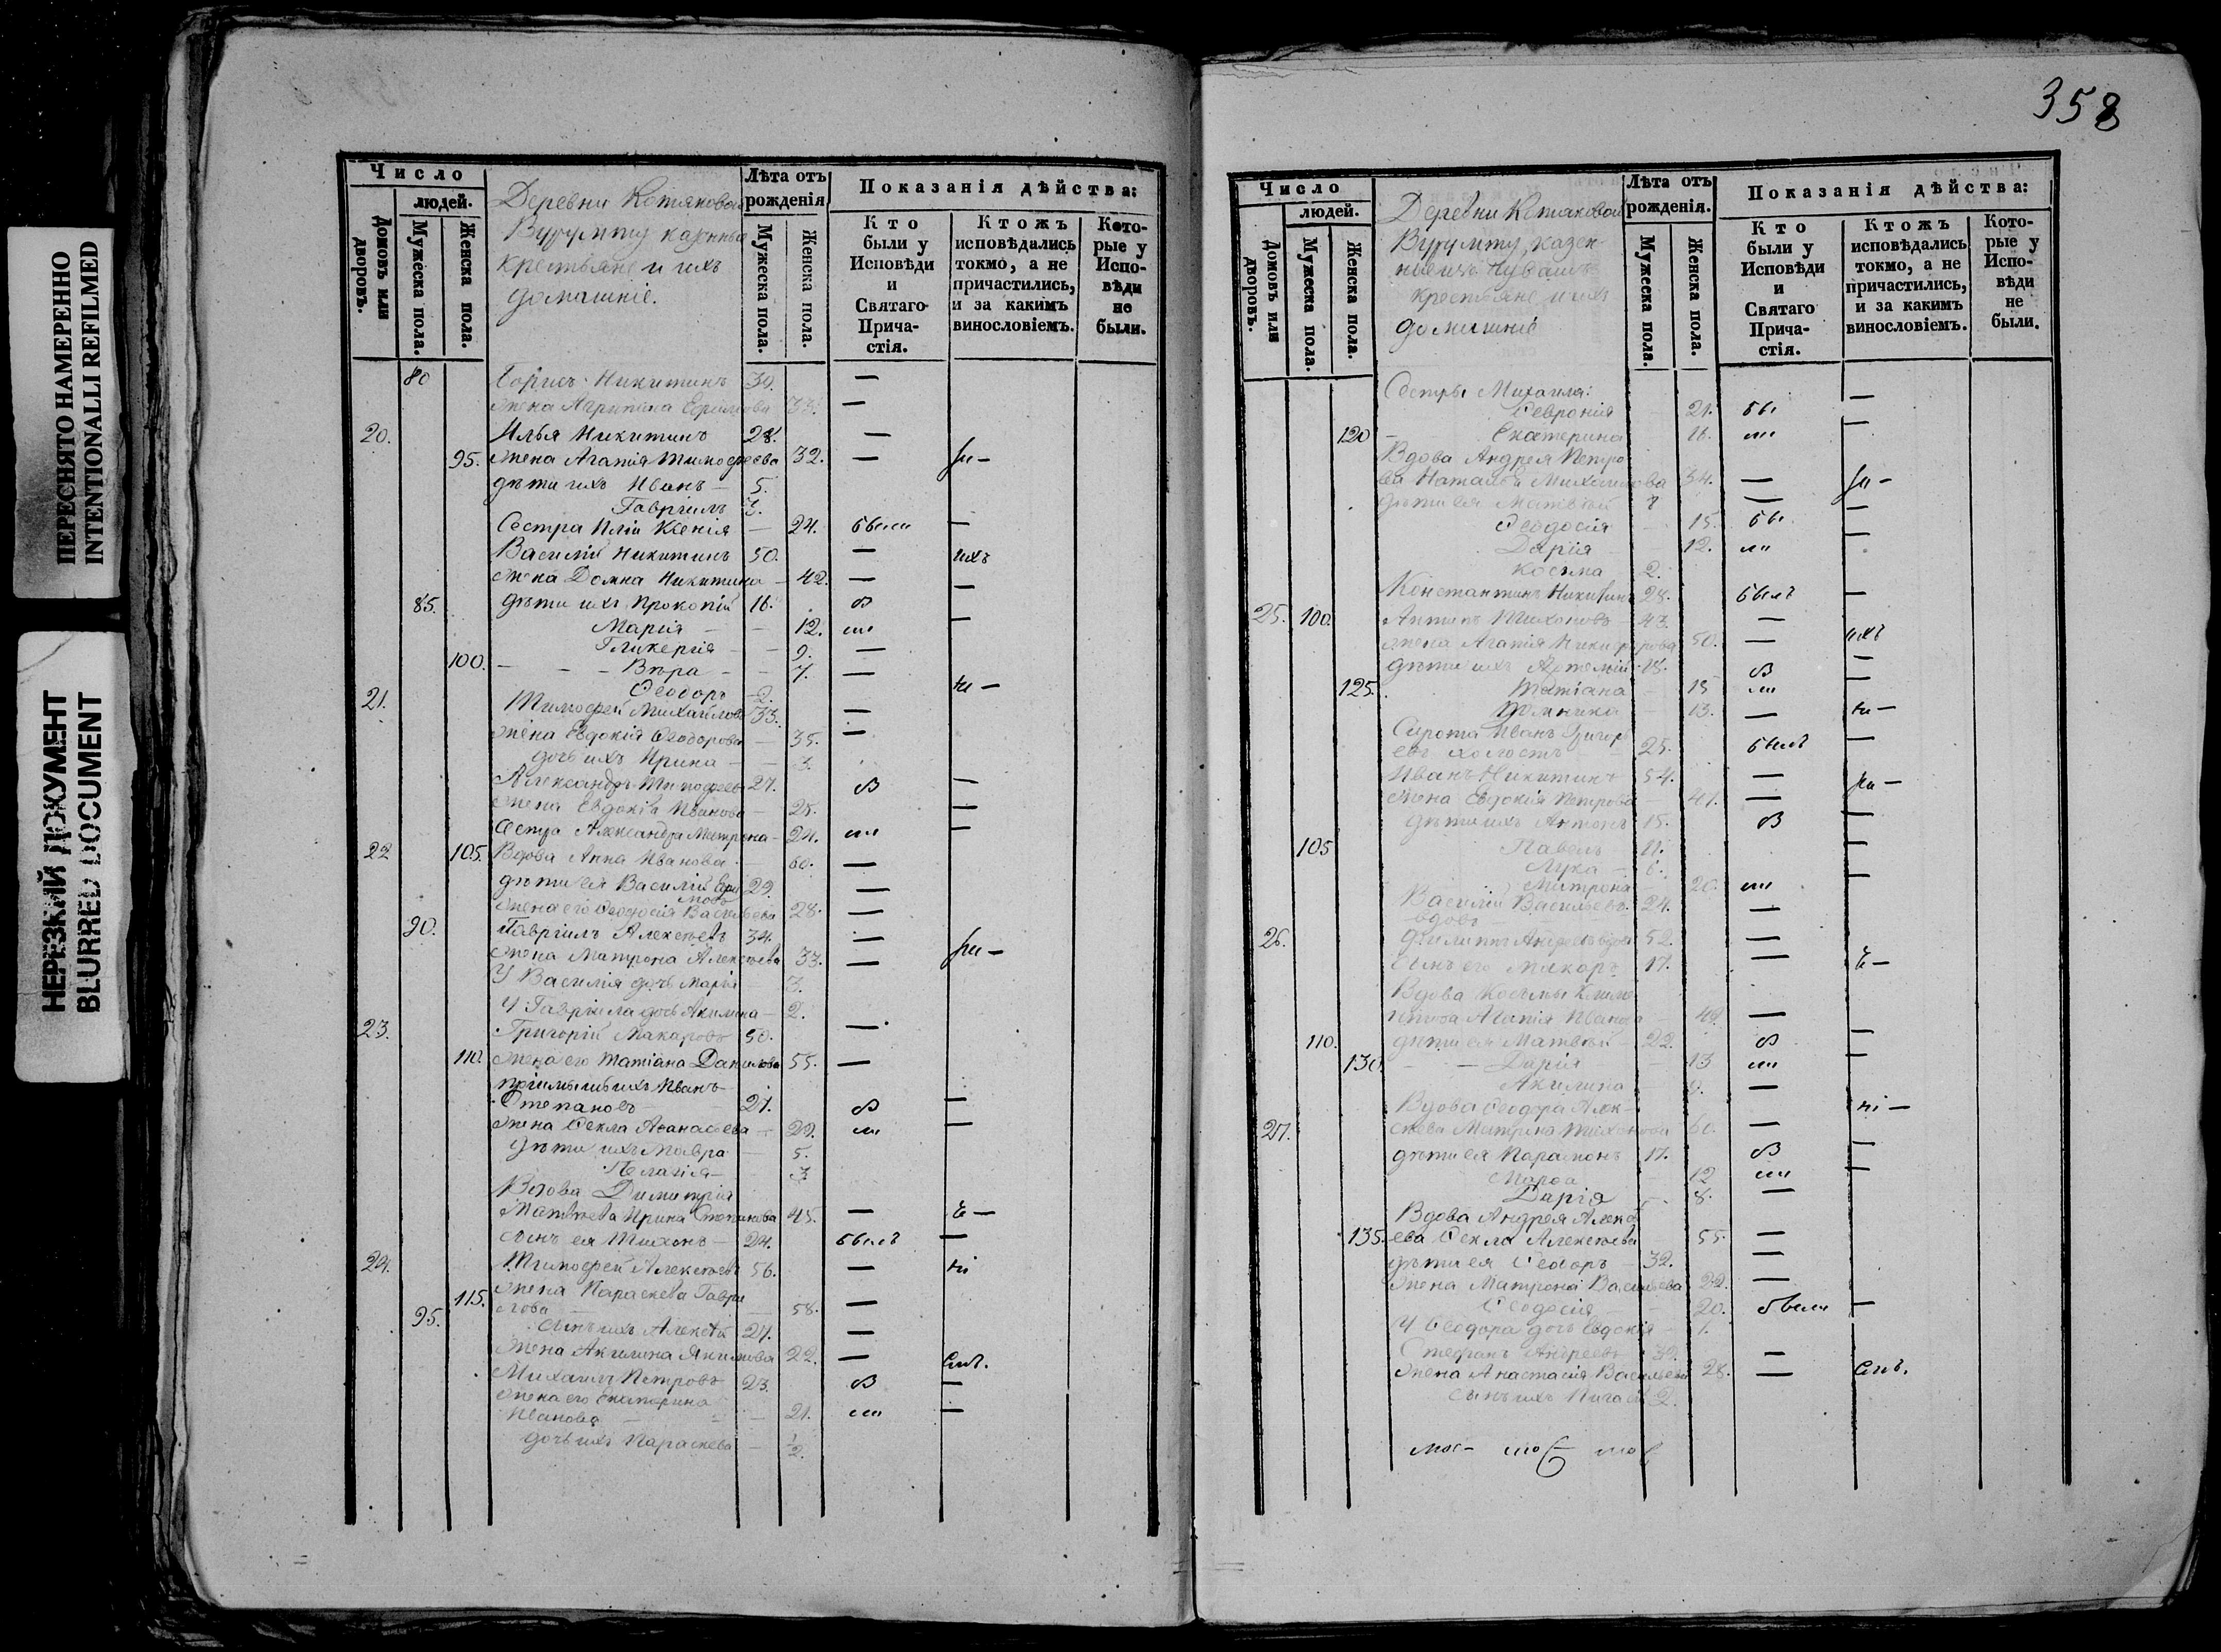 ПЕРЕСНЯТО НАМЕРЕННО
INTENTIONALLI REFILMED
НЕРЕЗКИЙ ДОКУМЕНТ
BLURRED DOCUMENT
Число
людей.
Домовъ или дворовъ.
Мужеска пола.
Женска пола.
Деревни
казенные
крестьяне и ихъ
домашніе.
Лѣта отъ рожденія
Мужеска пола.
Женска пола.
Показанія дѣйства:
Кто были у Исповѣди и Святаго Причастія.
Ктожъ исповѣдались токмо, а не причастились, и за какимъ винословіемъ.
Которые у Исповѣди не были.
80 Борисъ Никитинъ 30. —
жена Агрипина 33. —
20. Илья Никитинъ 28. —
95. жена Агапія Тимофеева 32. —
дѣти ихъ Иванъ — 5.
Гавріилъ 3.
Сестра Иліи Ксенія — 24. были —
Василій Никитинъ 50. — ихъ
жена Домна Никитина — 42. — —
85. дѣти ихъ Прокопій 16. —
Марія — — 12. ли —
Гликерія — 9. —
100. — — — Вѣра — — 7. —
Ѳеодоръ — 2.
21. Тимофей Михайловъ 33. —
жена Евдокія Ѳеодорова — 35. —
дочь ихъ Ирина — — 3.
Александръ 27. —
жена Евдокія Иванова — 28. —
Сестра Александра Матрона — 24. ли —
22 105. Вдова Анна Иванова — 60. —
дѣти ея Василій 29. —
жена его Ѳеодосія Васильева 28. —
90. Гавріилъ Алексѣевъ 34. —
жена Матрона Алексѣева 33. —
У Василія дочь Марія 3.
У Гавріила дочь Акилина — 2.
23. Григорій Макаровъ 50. —
110. жена его Татіана Данилова 55. —
Иванъ
Степановъ 27. —
жена Ѳекла Аѳанасьева — 29. ли —
дѣти ихъ Мавра — 5.
Пелагія — 3
Вдова Димитрія
Матвѣева Ирина Степанова 45. —
сынъ ея Тихонъ — 24. былъ —
24. Тимофей Алексѣевъ 56. —
115. жена Параскева Гаври
лова — 58. —
95. сынъ ихъ Алексѣй 27. —
жена Акилина Якимова 22. —
Михаилъ Петровъ 23. —
жена его Екатерина
Иванова — 21. ли —
дочь ихъ Параскева — 1/2
358
Число
людей.
Домовъ или дворовъ.
Мужеска пола.
Женска пола.
Деревни
крестьяне и ихъ
домашніе
Лѣта отъ рожденія.
Мужеска пола.
Женска пола.
Показанія дѣйства:
Кто были у Исповѣди и Святаго Причастія.
Ктожъ исповѣдались токмо, а не причастились, и за какимъ винословіемъ.
Которые у Исповѣди не были.
Сестры Михаила:
Ѳевронія 21. бы —
120 — Екатерина 16. ли —
Вдова Андрея Петро
ва Наталья Михайлова 34. —
дѣти ея Матвѣй 7 —
Ѳеодосія — 15. бы —
Дарія 12. ли
Косьма 2.
Константинъ 28. былъ —
25. 100. Антипъ Тихоновъ 43. —
жена Агапія Никифорова 50. — ихъ
дѣти ихъ Артемій 18. —
125. Татіана — 15 ли —
Домника 13. —
Сирота Иванъ Григорь
евъ холостъ 25. былъ —
Иванъ Никитинъ 54. —
жена Евдокія Петрова 41. —
дѣти ихъ Антонъ 15. —
105 Павелъ 11. —
Лука — 6. —
Матрона 20. ли —
Василій Васильевъ 24. —
вдовъ
26. Филиппъ Андреевъ 52. —
сынъ его Макаръ 17. —
Вдова Косьмы
Агапія Иванова 49. —
110. дѣти ея Матвѣй — 22. —
130. — — Дарія 13 ли —
Акилина 9. —
Вдова Ѳеодора Алек-
27. сѣева Матрена Тихонова 60. —
дѣти ея Парамонъ 17. —
Марѳа 12 ли —
Дарія — 8. —
Вдова Андрея Алексѣ
135. ева Ѳекла Алексѣева 55. —
дѣти ея Ѳеодоръ — 32. —
жена Матрона Васильева 22. —
Ѳеодосія 20. были —
У Ѳеодора дочь Евдокія 1.
Стефанъ Андреевъ 32. —
жена Анастасія Васильева 28. —
сынъ ихъ 2.